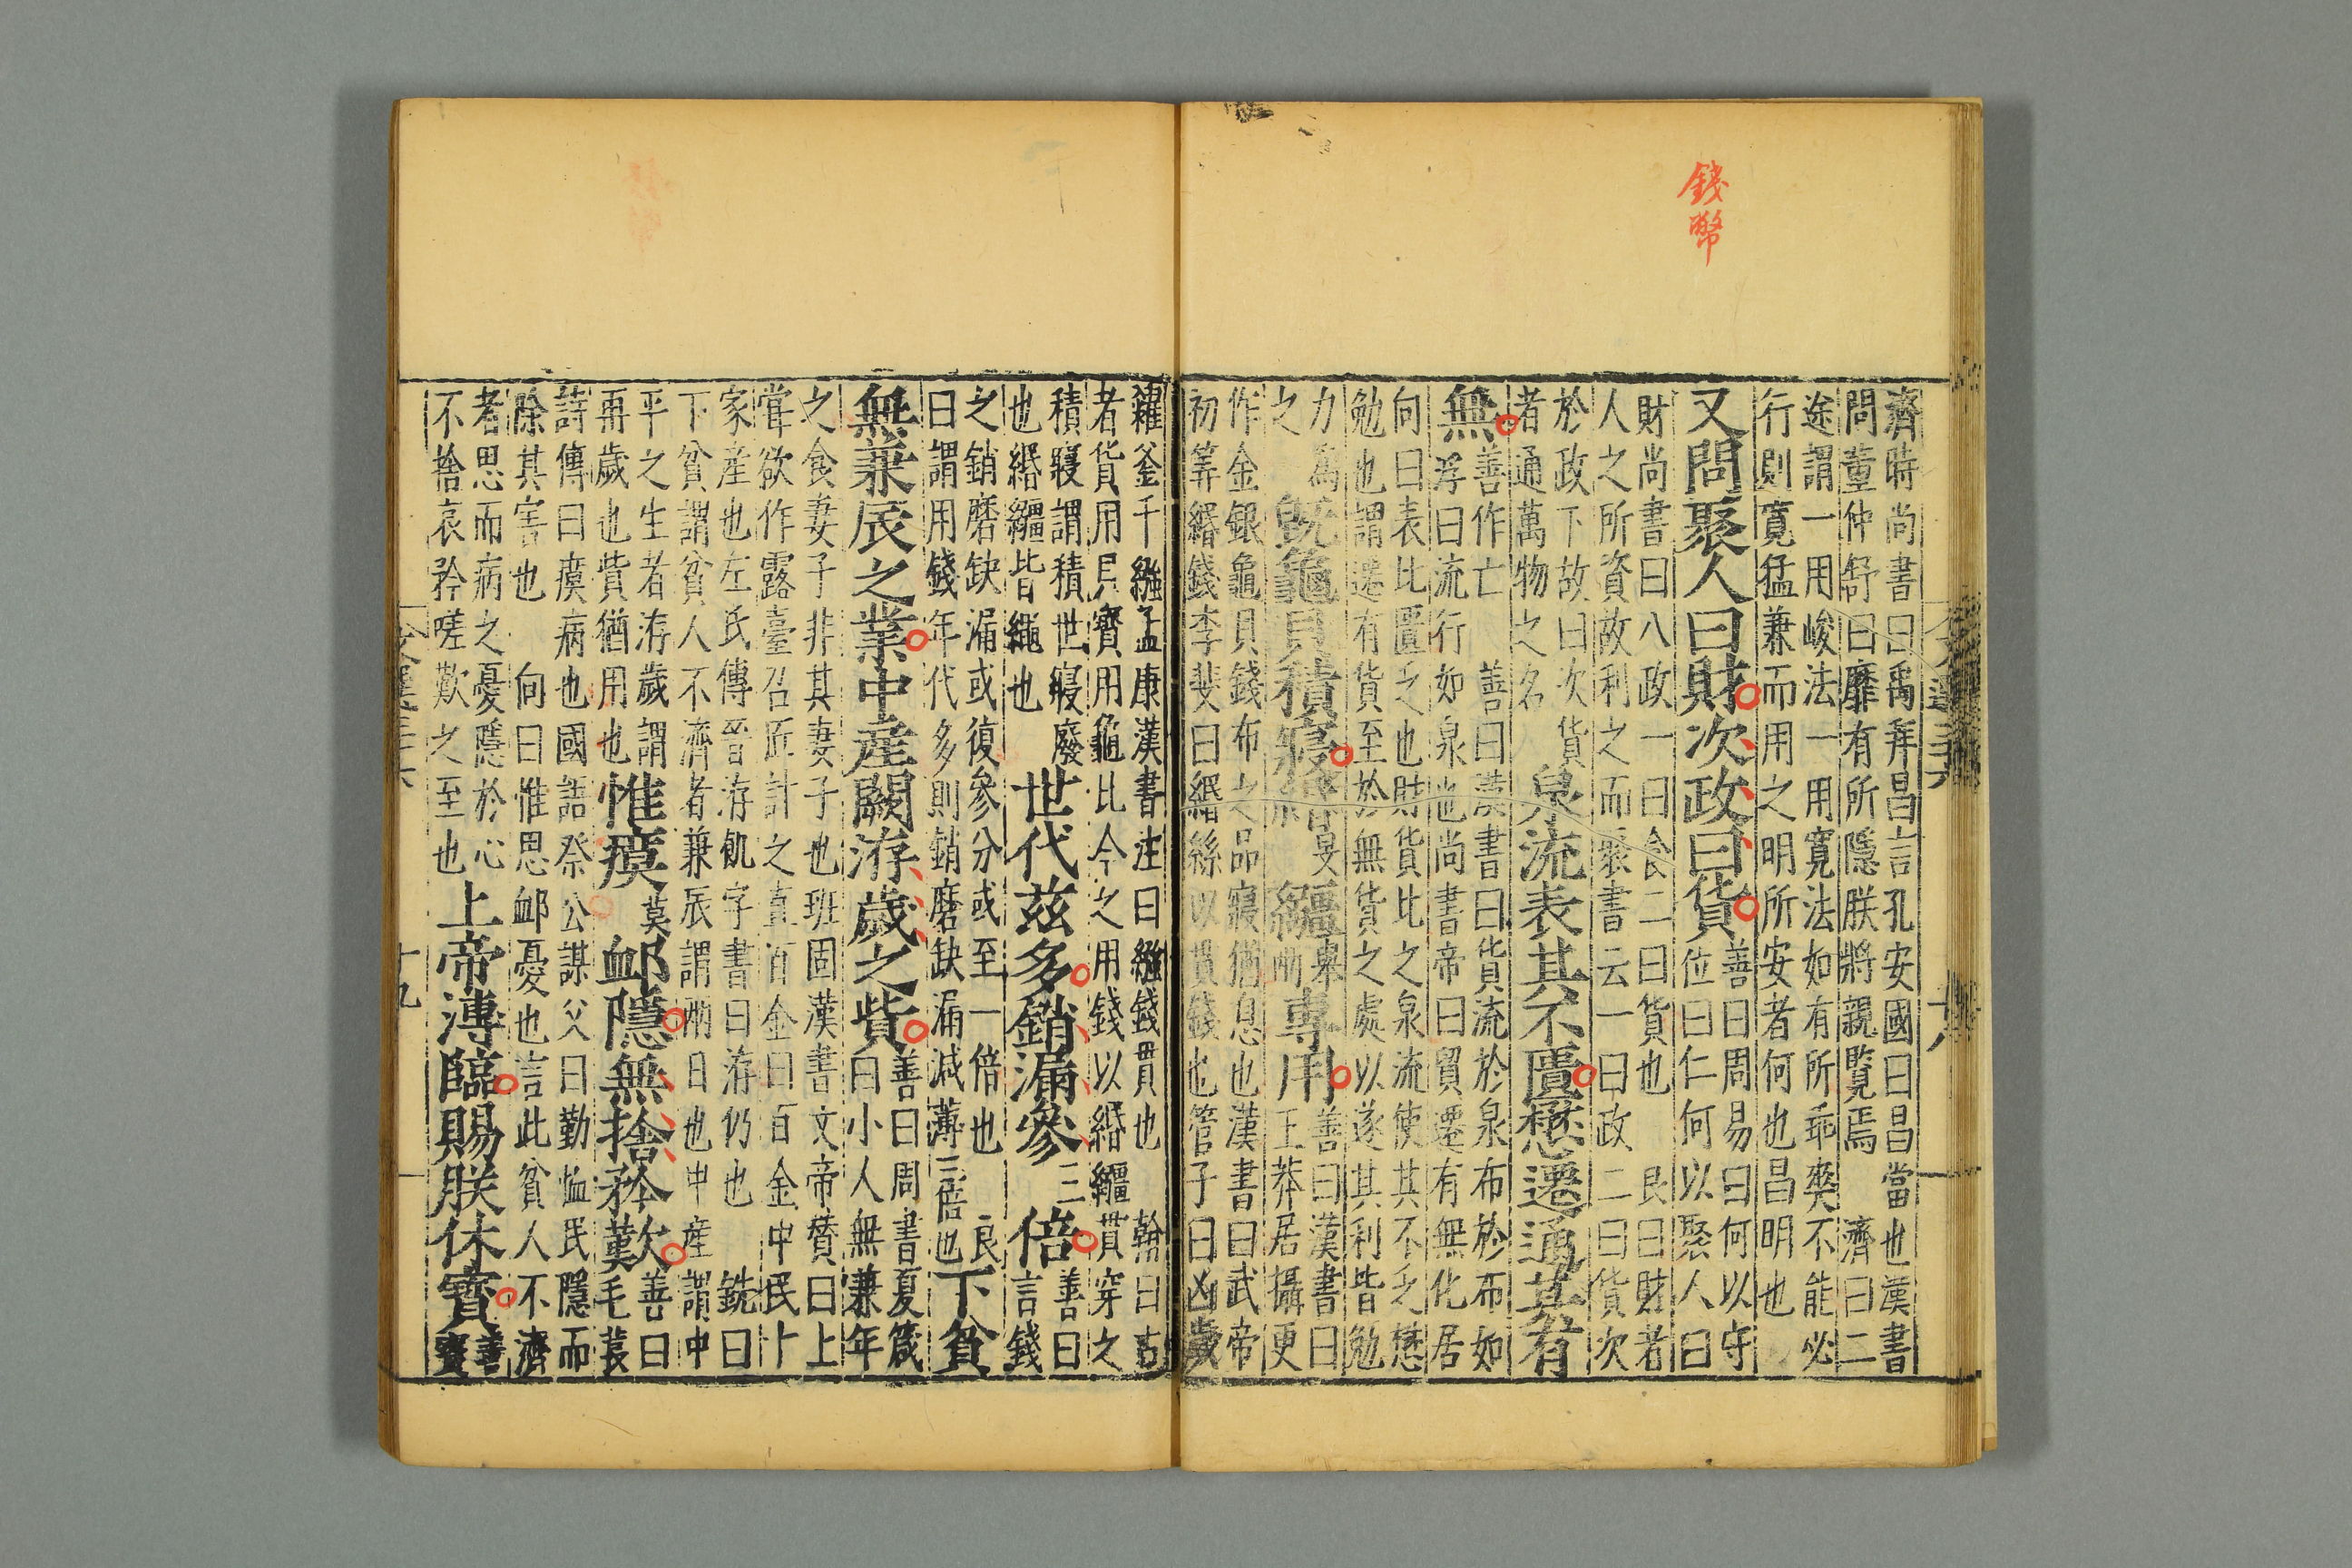 錢幣
濟時尚書曰禹拜昌言孔安國曰昌當也漢書
問董仲舒曰靡有所隱朕將親覽焉 濟曰二
途謂一用峻法一用寬法如有所乖奕不能必
行則寬猛兼而用之明所安者何也昌明也
又問聚人曰財次政曰貨
善曰周易曰何以守
位曰仁何以聚人曰
財尚書曰八政一曰食二曰貨也 良曰財者
人之所資故利之而聚書云一曰政二曰貨次
於政下故曰次貨
者通萬物之名
泉流表其不匱懋遷通其有
無
善作亡 善曰漢書曰貨流於泉布於布如
浮曰流行如泉也尚書帝曰貿遷有無化居
向曰表比匱乏也財貨比之泉流使其不乏懋
勉也謂遷有貨至於無貨之處以遂其利皆勉
力為
之
既龜貝積寢
緡
旻
繦
專用
善曰漢書曰
王莽居攝更
作金銀龜貝錢布之品寢猶息也漢書曰武帝
初筭緡錢李斐曰緡絲以貫錢也管子曰凶歲
糴釜千繦孟康漢書注曰繦錢貫也 翰曰古
者貨用貝寶用龜比今之用錢以緡繦貫穿之
積寢謂積世寢廢
也緡繦皆繩也
世代茲多銷漏參
三
倍
善曰
言錢
之銷磨缺漏或復參分或至一倍也 良
曰謂用錢年代多則銷磨缺漏減薄三倍也
下貧
無兼辰之業中産闕洊歲之貲
善曰周書夏箴
曰小人無兼年
之食妻子非其妻子也班固漢書文帝贊曰上
嘗欲作露臺召匠計之直百金曰百金中民十
家産也左氏傳晉洊飢字書曰洊仍也 銑曰
下貧謂貧人不濟者兼辰謂兩日也中産謂中
平之生者洊歲謂
再歲也貲猶用也
惟瘼
莫
卹隱無捨矜歎
善曰
毛萇
詩傳曰瘼病也國語祭公謀父曰勤恤民隱而
除其害也 向曰惟思卹憂也言此貧人不濟
者思而病之憂隱於心
不捨哀矜嗟歎之至也
上帝溥臨賜朕休寶
善
寶
十九